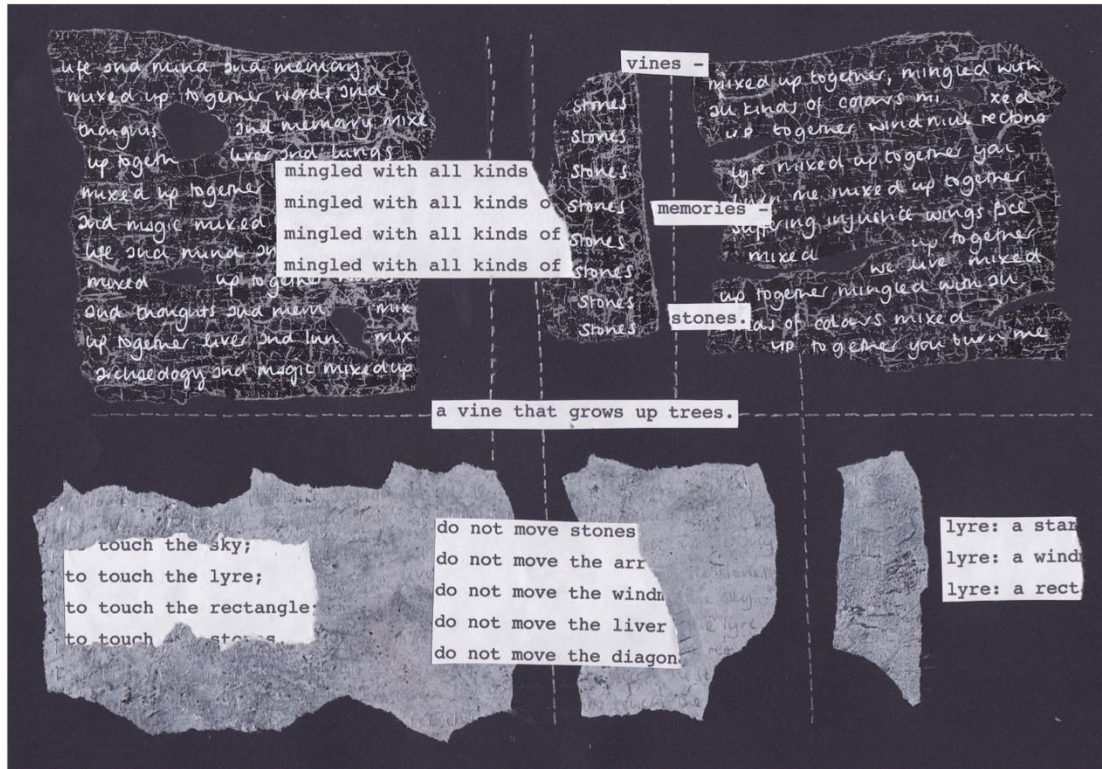 life and mind and memory
mixed up together words and
thoughts and memory mixe
up togeth liver and lungs
mixed up together
and magic mixed
life and mind an
mixed up together
and thoughts and mem mix
up together liver and lun mix
archaeology and magic mixed up
mingled with all kinds
mingled with all kinds o
mingled with all kinds of
mingled with all kinds of
stones
stones
stones
stones
stones
stones
stones
stones
vines -
memories -
stones.
mixed up together, mingled with
all kinds of colours mi xed
up together windmill rectang
lyre mixed up together you
burn me mixed up together
suffering injustice wings face
mixed up together
we live mixed
up together mingled with all
kinds of colours mixed
up together you burn me
a vine that grows up trees.
to touch the sky;
to touch the lyre;
to touch the rectangle;
to touch stones
do not move stones
do not move the arr
do not move the windm
do not move the liver
do not move the diagon
lyre: a star
lyre: a windm
lyre: a rect